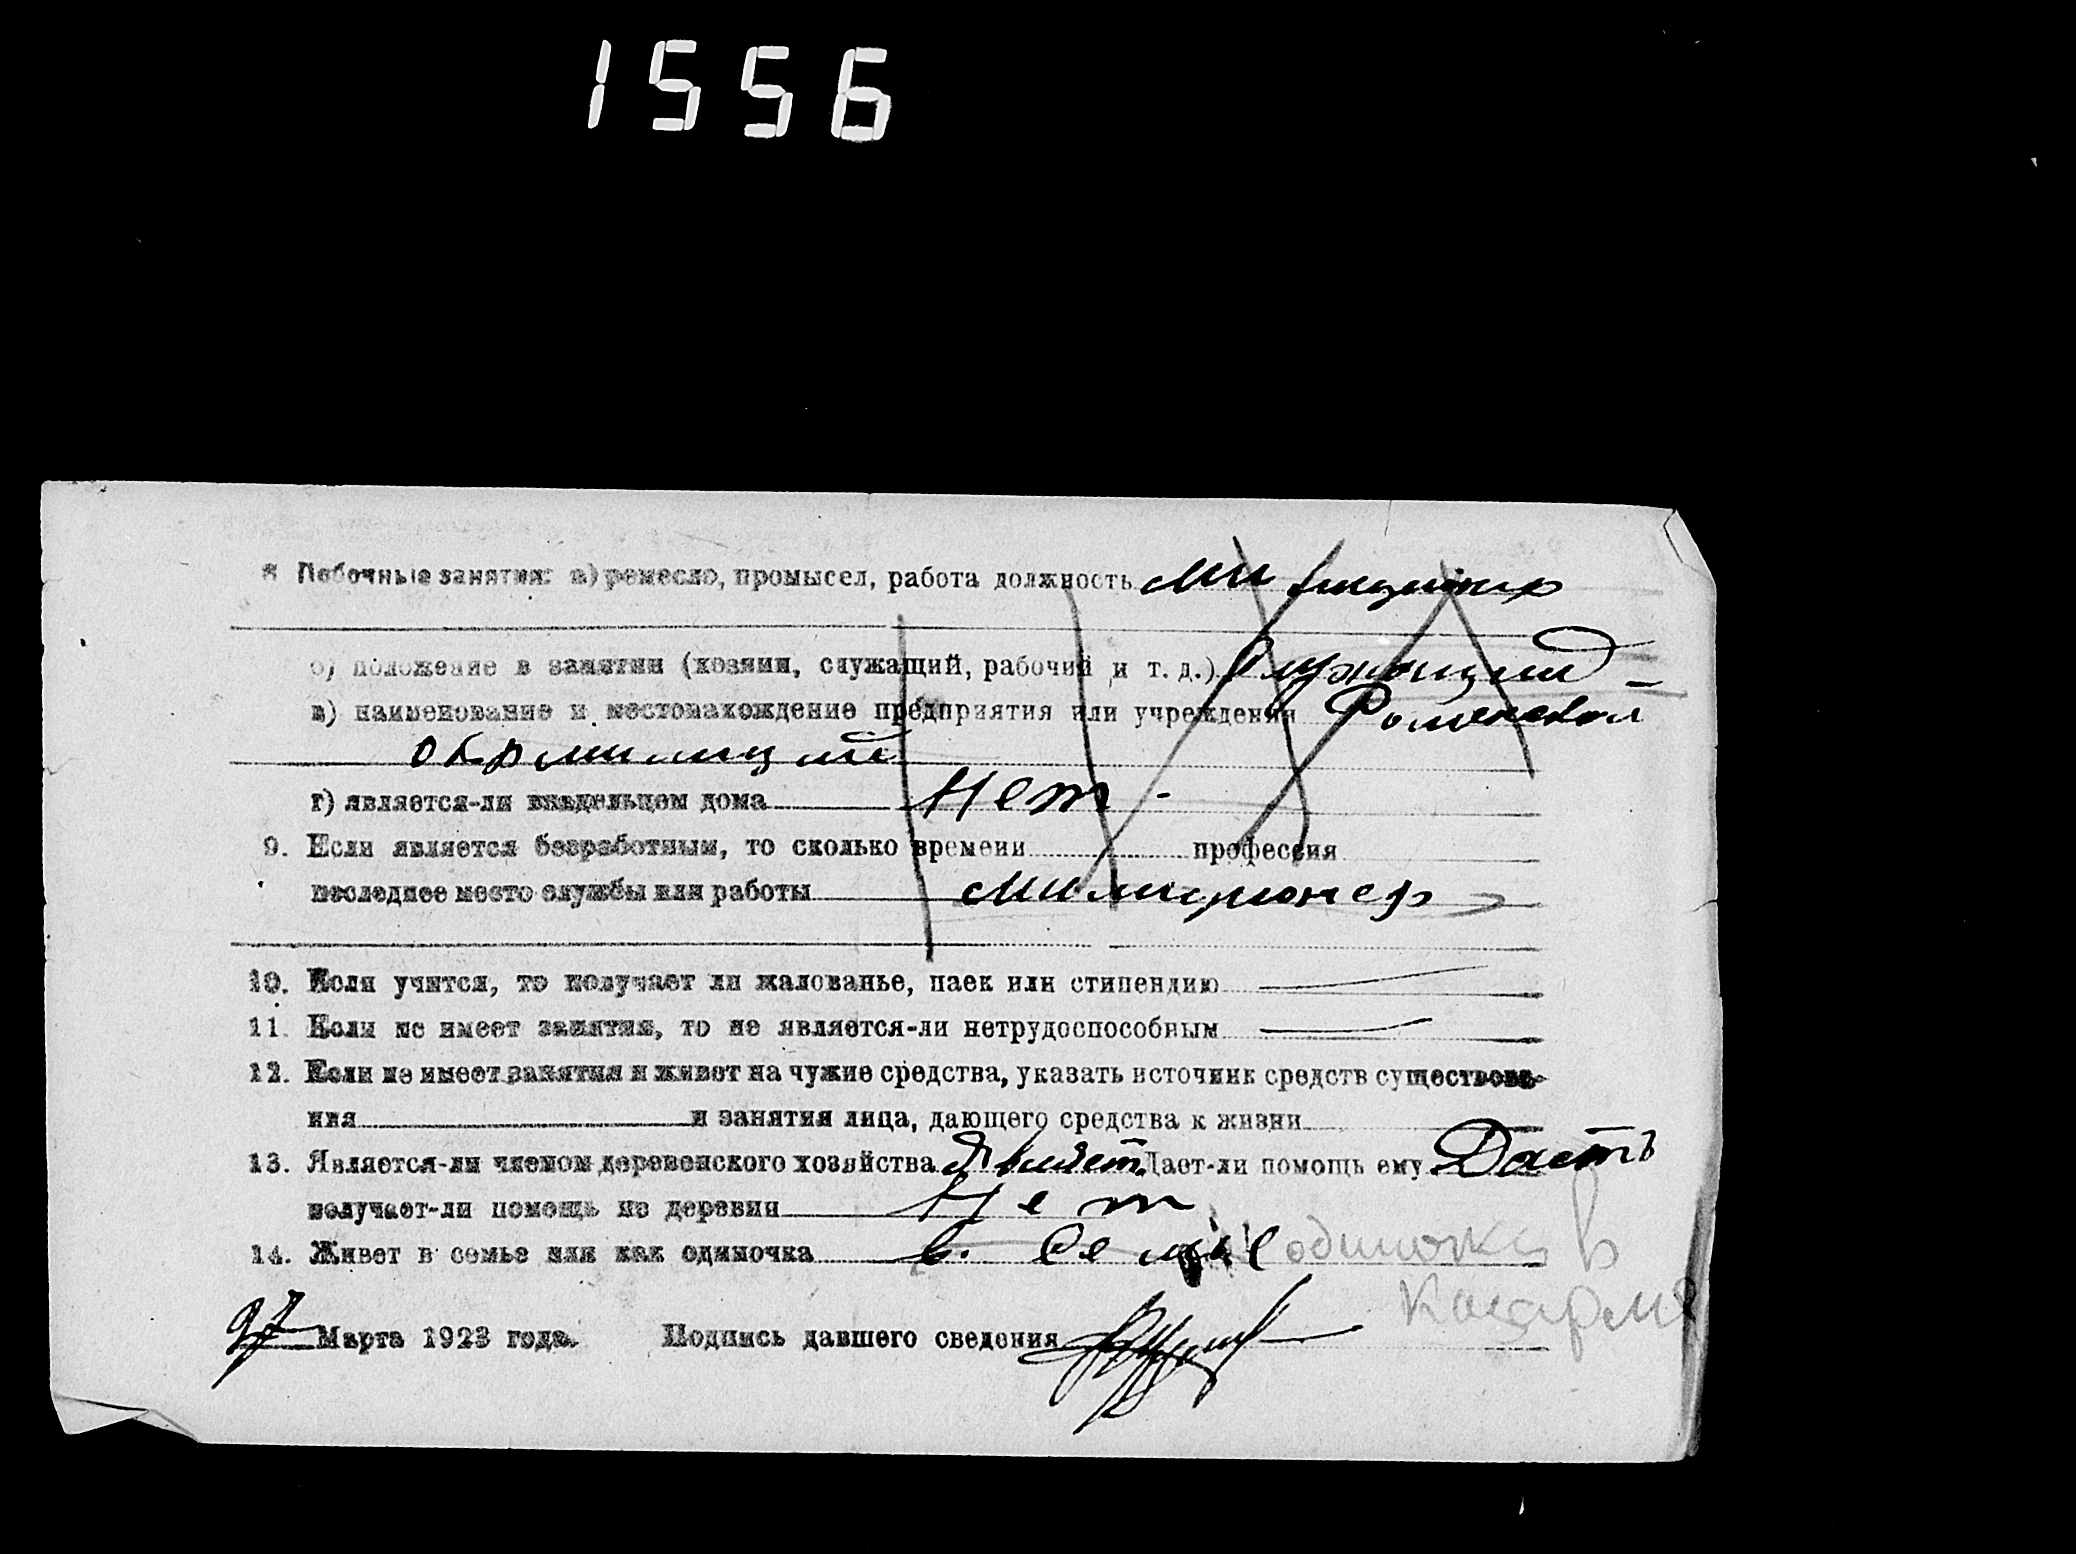 1556
8 Побочные занятия: а) ремесло, промысел, работа должность Милиционер
б) положение в занятии (хозяин, служащий, рабочий и т. д.) Служащий –
в) наименование и местонахождение предприятия или учреждения Роменской
окрмилиции
г) является-ли владельцем дома Нет -
9. Если является безработным, то сколько времени профессия
последнее место службы или работы Милиционер
10. Если учится, то получает ли жалованье, паек или стипендию
11. Если не имеет занятия, то не является-ли нетрудоспособным
12. Если не имеет занятия и живет на чужие средства, указать источник средств существова-
ния и занятия лица, дающего средства к жизни
13. Является-ли членом деревенского хозяйства Являет. Дает-ли помощь ему Даетъ
получает-ли помощь из деревни Нет
14. Живет в семье или как одиночка в. Семье одиночка в
казарме
27 Марта 1923 года. Подпись давшего сведения